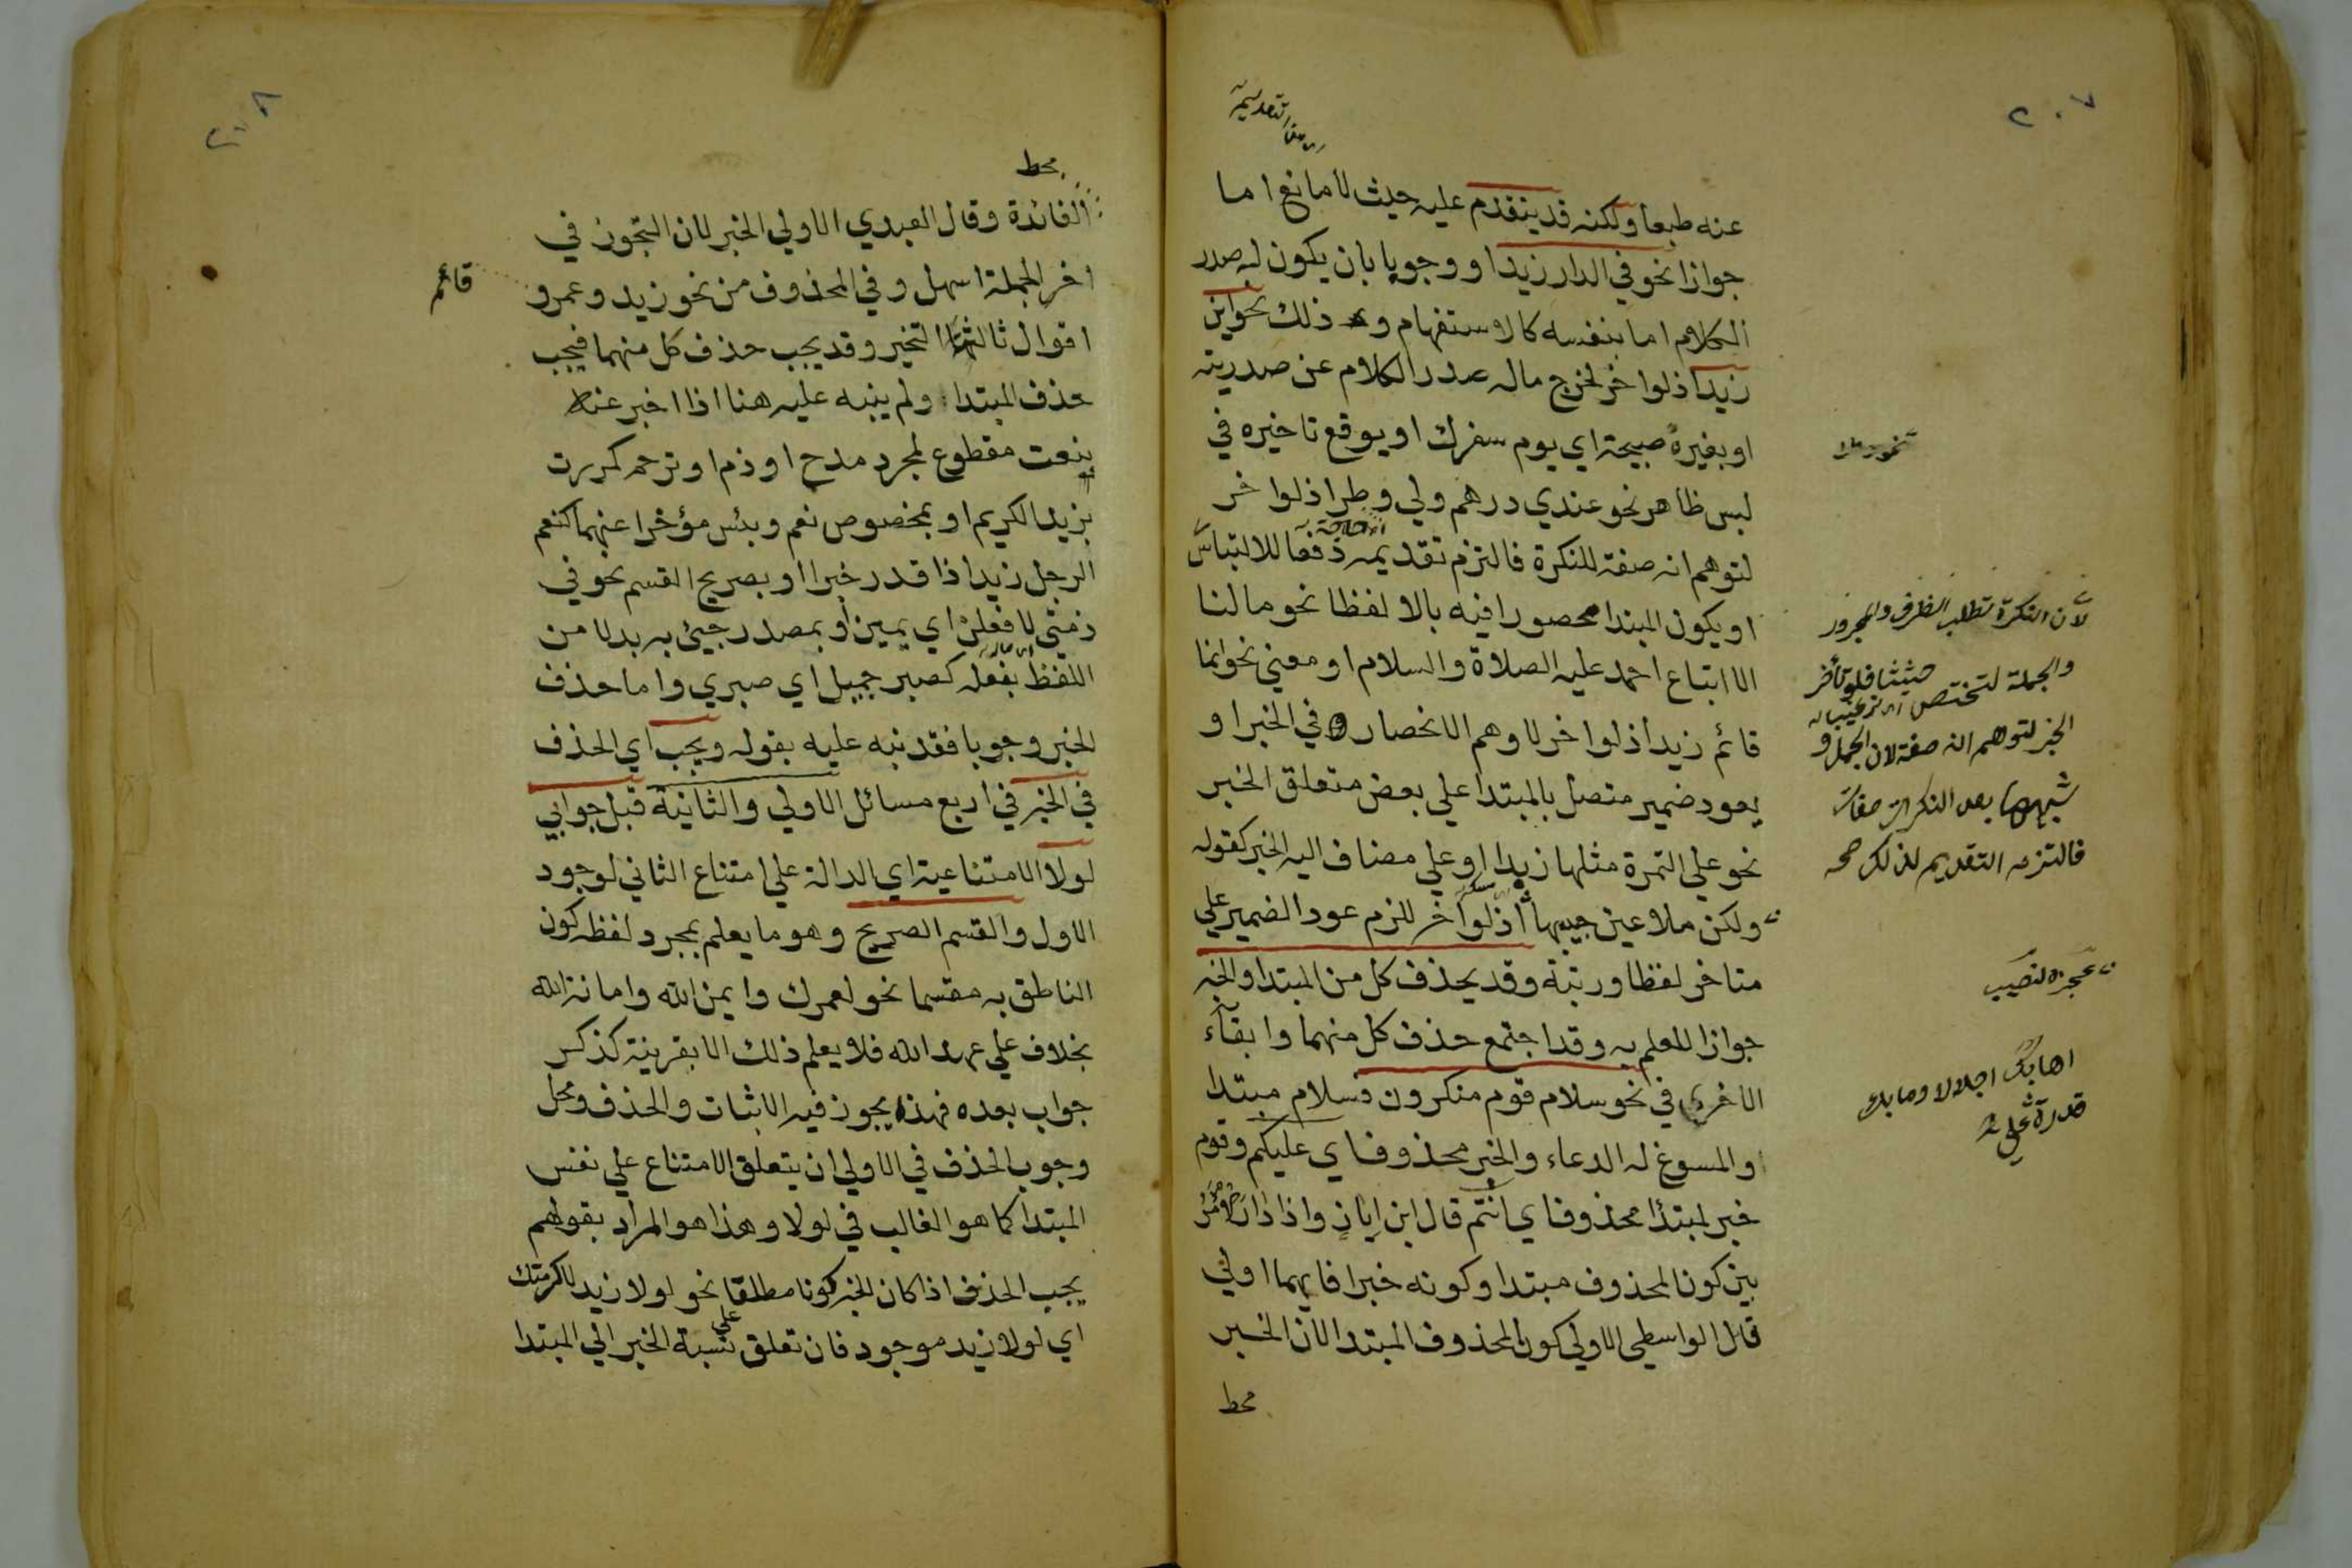 ٢٠٧
عنه طبعا ولكنه قد يتقدم عليه حيث لا مانع اما
جوازا نحو في الدار زيد او وجوبا بان يكون له صدر
الكلام اما بنفسه كالاستفهام وذلك نحو اين
زيد اذ لو اخر لخرج ماله صدر الكلام عن صدريته
او بغيره صبيحة اي يوم سفرك او يوقع تاخيره في
لبس ظاهر نحو عندي درهم ولي وطر اذ لو اخر
لتوهم انه صفة للنكرة فالتزم تقديمه دفعا للالتباس
او يكون المبتدا محصورا فيه بالا لفظا نحو ما لنا
الا اتباع احمد عليه الصلاة والسلام او معني نحو انما
قائم زيد اذ لو اخر لاوهم الانحصار في الخبر او
يعود ضمير متصل بالمبتدا علي بعض متعلق الخبر
نحو علي التمرة مثلها زبدا او علي مضاف اليه الخبر كقوله
ولكن ملا عين حبيبها اذ لو اخر للزم عود الضمير علي
متاخر لفظا ورتبة وقد يحذف كل من المبتدا والخبر
جوازا للعلم به وقد اجتمع حذف كل منهما وابقاء
الاخر في نحو سلام قوم منكرون فسلام مبتدا
والمسوغ له الدعاء والخبر محذوف اي عليكم وقوم
خبر لمبتدأ محذوف اي انتم قال ابن اياز واذا دار الامر
بين كون المحذوف مبتدا وكونه خبرا فايهما اولي
قال الواسطي الاولي كون المحذوف المبتدا لان الخبر
محط
لان النكرة تطلب الظرف والمجرور
والجملة لتختص
حثيثا فلو تأخر
الخبر لتوهم انه صفة لان الجمل و
شبهها بعد النكرات صفات
فالتزم التقديم لذلك صح
عجزه لنصيب
اهابك اجلالا وما بك
قدرة علي
٢٠٨
محط
الفائدة وقال العبدي الاولي الخبر لان التجوز في
اخر الجملة اسهل وفي المحذوف من نحو زيد وعمرو
قائم
اقوال ثالثها التخير وقد يجب حذف كل منهما فيجب
حذف المبتدا ولم ينبه عليه هنا اذا اخبر عنه
بنعت مقطوع لمجرد مدح او ذم او ترحم كمررت
بزيد الكريم او بمخصوص نعم وبئس مؤخرا عنهما كنعم
الرجل زيد اذا قدر خبرا او بصريح القسم نحو في
ذمتي لافعلن اي يمين او بمصدر جيئ به بدلا من
اللفظ بفعله كصبر جميل اي صبري واما حذف
الخبر وجوبا فقد نبه عليه بقوله ويجب اي الحذف
في الخبر في اربع مسائل الاولي والثانية قبل جوابي
لولا الامتناعية اي الدالة علي امتناع الثاني لوجود
الاول والقسم الصريح وهو ما يعلم بمجرد لفظه كون
الناطق به مقسما نحو لعمرك وايمن الله وامانة الله
بخلاف علي عهد الله فلا يعلم ذلك الا بقرينة كذكر
جواب بعده فهذا يجوز فيه الاثبات والحذف ومحل
وجوب الحذف في الاولي ان يتعلق الامتناع علي نفس
المبتدا كما هو الغالب في لولا وهذا هو المراد بقولهم
يجب الحذف اذا كان الخبر كونا مطلقا نحو لولا زيد لاكرمتك
اي لولا زيد موجود فان تعلق علي نسبة الخبر الي المبتدا